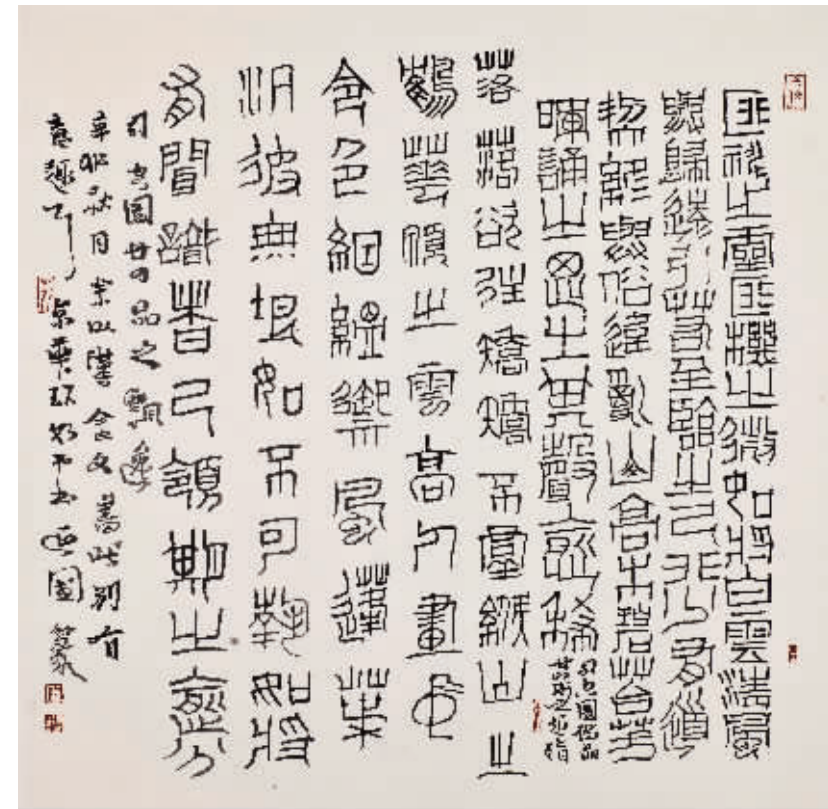 匪神之靈匪機之微如將白雲清風
與歸遠引若至臨之已非少有道
契終與俗違亂山高木碧苔芳
暉誦之思之其聲愈稀
司空圖詩品
之超詣
落落欲往矯矯不群緱山之
鶴華頂之雲高人畫中
令色絪縕御風蓬葉
汎彼無垠如不可執如將
有聞識者已領期之愈分
司空圖廿四品之飄逸
辛卯秋月余以漢金文書此別有
意趣 京華